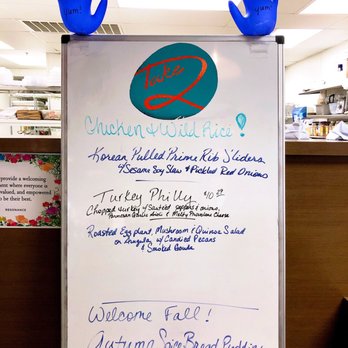 yum!
yum!
Take
2
Chicken & Wild Rice!
Korean Pulled Prime Rib Sliders
w/ Sesame Soy Slaw & Pickled Red Onions
Turkey Philly
Chopped turkey w/ Sauteed peppers & onions,
Parmesan Garlic Aioli & Melty Provolone Cheese
Roasted Eggplant, Mushroom & Quinoa Salad
on Arugula w/ Candied Pecans
& Smoked Gouda
Welcome Fall!
Autumn Spice Bread Pudding
providing a welcoming
ment where everyone is
valued, and empowered
to be their best.
RESONANCE